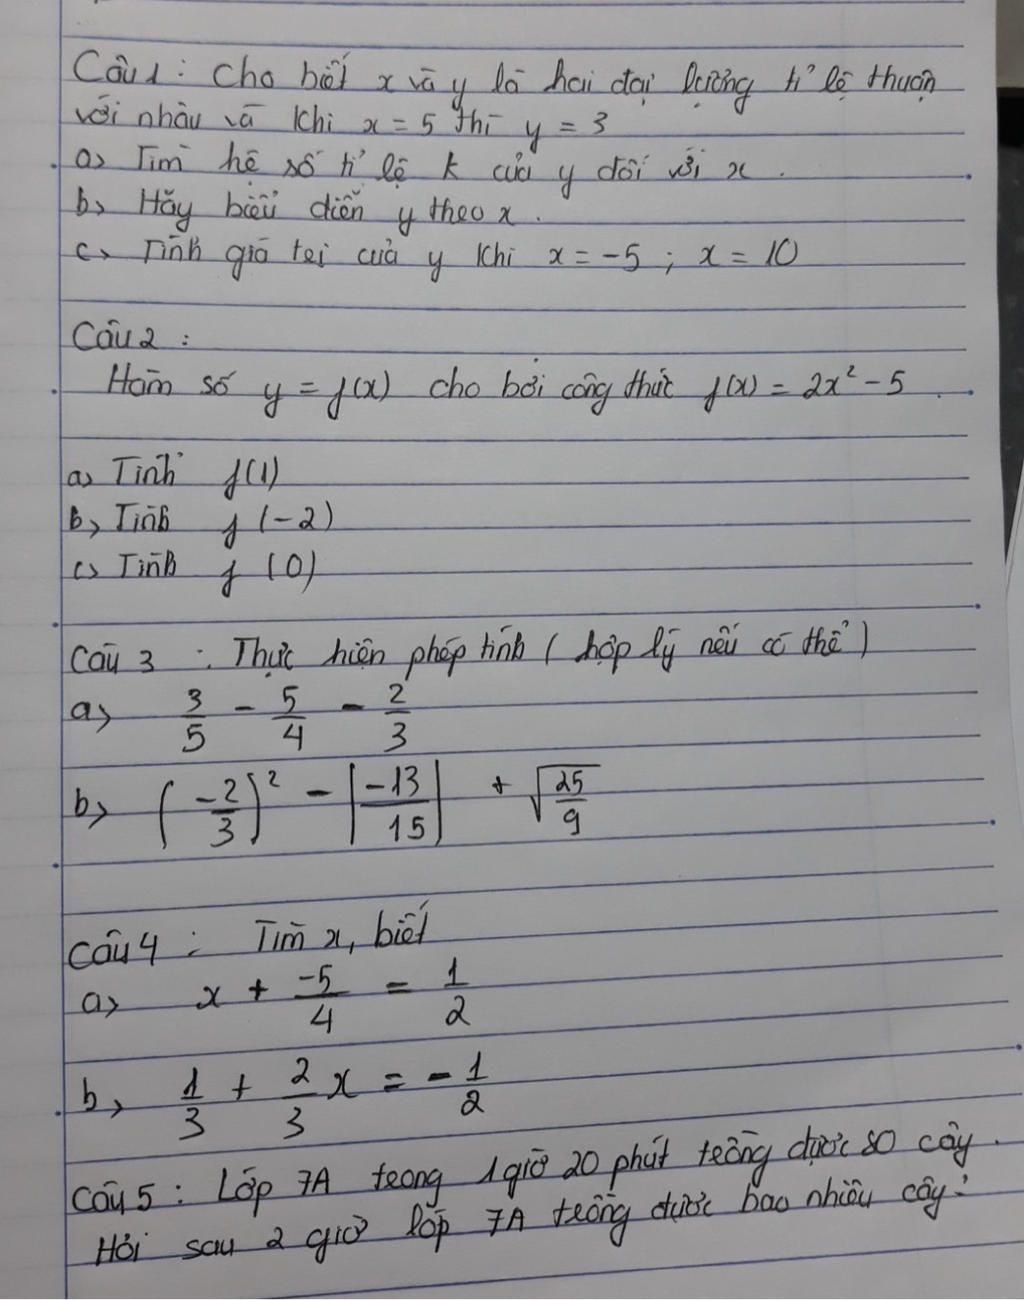 Câu 1: Cho biết x và y là hai đại lượng tỉ lệ thuận
với nhau và khi x = 5 thì y = 3
a, Tìm hệ số tỉ lệ k của y đối với x.
b, Hãy biểu diễn y theo x.
c, Tính giá trị của y khi x = -5 ; x = 10
Câu 2 :
Hàm số y = f(x) cho bởi công thức f(x) = 2x² - 5.
a, Tính f(1)
b, Tính f(-2)
c, Tính f(0)
Câu 3 : Thực hiện phép tính ( hợp lý nếu có thể )
a, 3/5 - 5/4 - 2/3
b, (-2/3)² - |-13/15| + √(25/9)
Câu 4 : Tìm x, biết
a, x + -5/4 = 1/2
b, 1/3 + 2/3 x = - 1/2
Câu 5 : Lớp 7A trong 1 giờ 20 phút trồng được 80 cây.
Hỏi sau 2 giờ lớp 7A trồng được bao nhiêu cây?